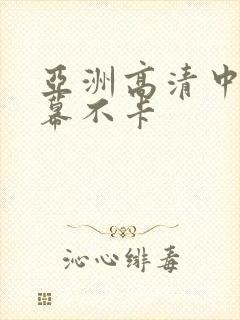 亞洲高清中
幕不卡
沁心緋毒